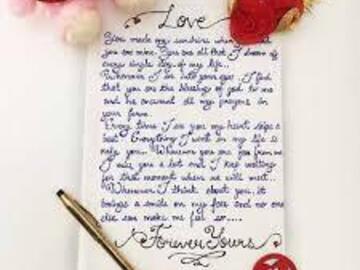 Love
You made my sunshine when
you are mine. You are all that I dream of
every single day of my life..
Whenever I see into your eyes I find
that you are the blessings of god to me
and he answered all my prayers in
your form..
Every time I see you my heart skips a
beat Everything I want in my life is
only you.. Whenever you are far from me
I miss you a lot and I keep waiting
for that moment when we will meet..
Whenever I think about you, it
brings a smile on my face and no one
else can make me feel so.....
Forever Yours